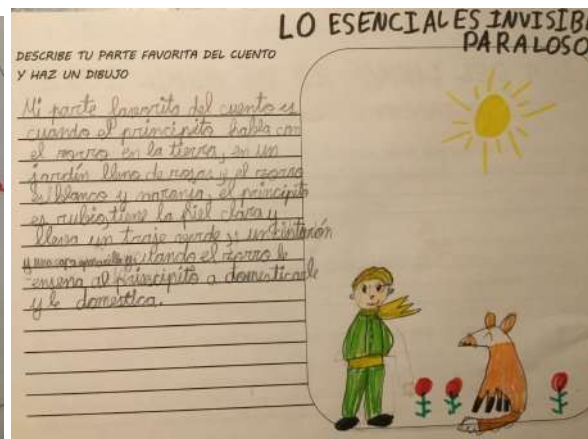 LO ESENCIAL ES INVISIB
PARA LOS O
DESCRIBE TU PARTE FAVORITA DEL CUENTO
Y HAZ UN DIBUJO
Mi parte favorita del cuento es
cuando el principito habla con
el zorro en la tierra, en un
jardín lleno de rosas y el zorro
es blanco y naranja, el principito
es rubio, tiene la piel clara y
lleva un traje verde y un cinturón
y una capa amarilla y cuando el zorro le
enseña al principito a domesticarle
y le domestica.